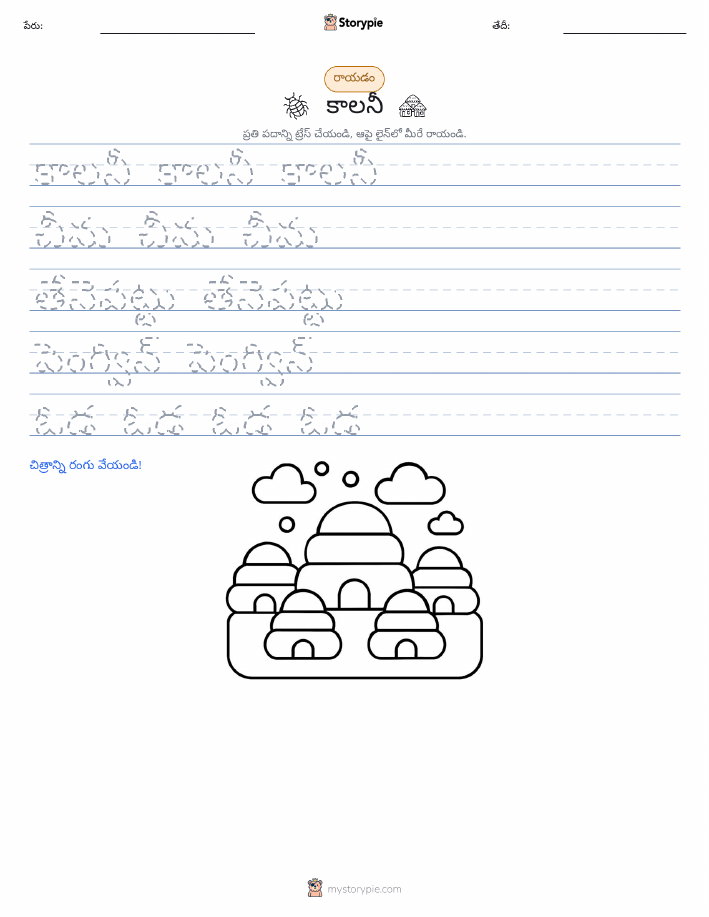 పేరు:
Storypie
తేదీ:
రాయడం
కాలనీ
ప్రతి పదాన్ని ట్రేస్ చేయండి, ఆపై లైన్‌లో మీరే రాయండి.
కాలనీ కాలనీ కాలనీ
చీమ చీమ చీమ
తేనెపట్టు తేనెపట్టు
పెంగ్విన్ పెంగ్విన్
ఓడ ఓడ ఓడ ఓడ
చిత్రాన్ని రంగు వేయండి!
mystorypie.com